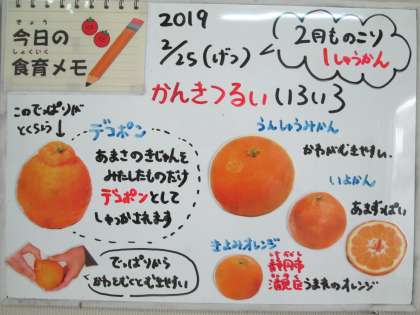 きょう
今日の
しょくいく
食育メモ
2019
2/25(げつ)
2月ものこり
1しゅうかん
かんきつるい いろいろ
このでっぱりが
とくちょう
デコポン
あまさのきじゅんを
みたしたものだけ
デコポンとして
しゅっかされます
でっぱりから
かわをむくとむきやすい
うんしゅうみかん
かわがむきやすい。
いよかん
あまずっぱい
きよみオレンジ
静岡市
清見区
うまれのオレンジ